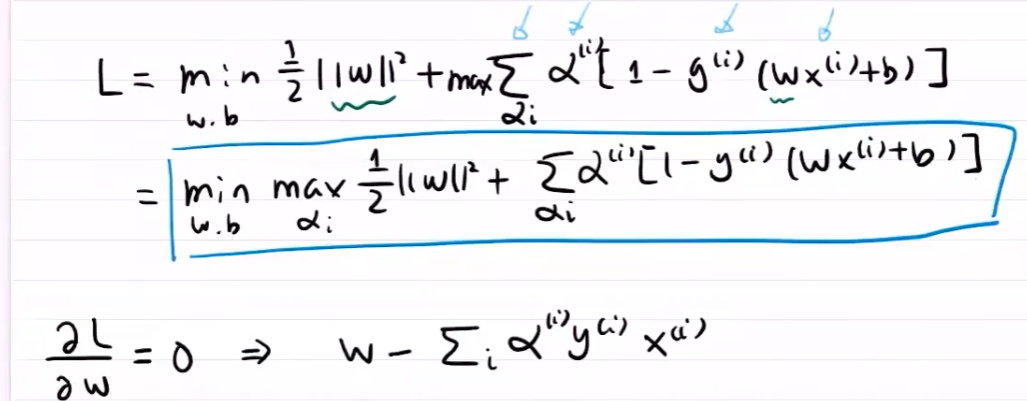 L = min_{w.b} 1/2 ||w||² + max Σ_{αi} α^{(i)} [ 1 - y^{(i)} (wx^{(i)}+b) ]
= min_{w.b} max_{αi} 1/2 ||w||² + Σ_{αi} α^{(i)} [1 - y^{(i)} (wx^{(i)}+b)]
∂L/∂w = 0 ⇒ w - Σ_i α^{(i)} y^{(i)} x^{(i)}